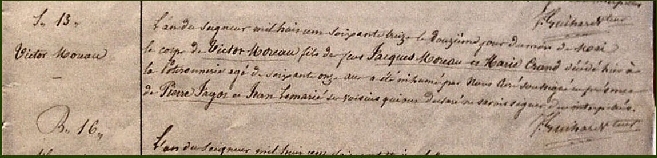 S. 13.
Victor Moreau
f. Guihard rect
L'an du Seigneur mil huit cent soixante treize le douzième jour du mois de Mai
le corps de Victor Moreau fils de feus Jacques Moreau et Marie Evand décédé hier à
la agé de soixante onze ans a été inhumé par Nous soussigné en présence
de Pierre et Jean Lemarié ses voisins qui ont déclaré ne savoir signer
f. Guihard rect
B. 16.
L'an du Seigneur mil huit cent